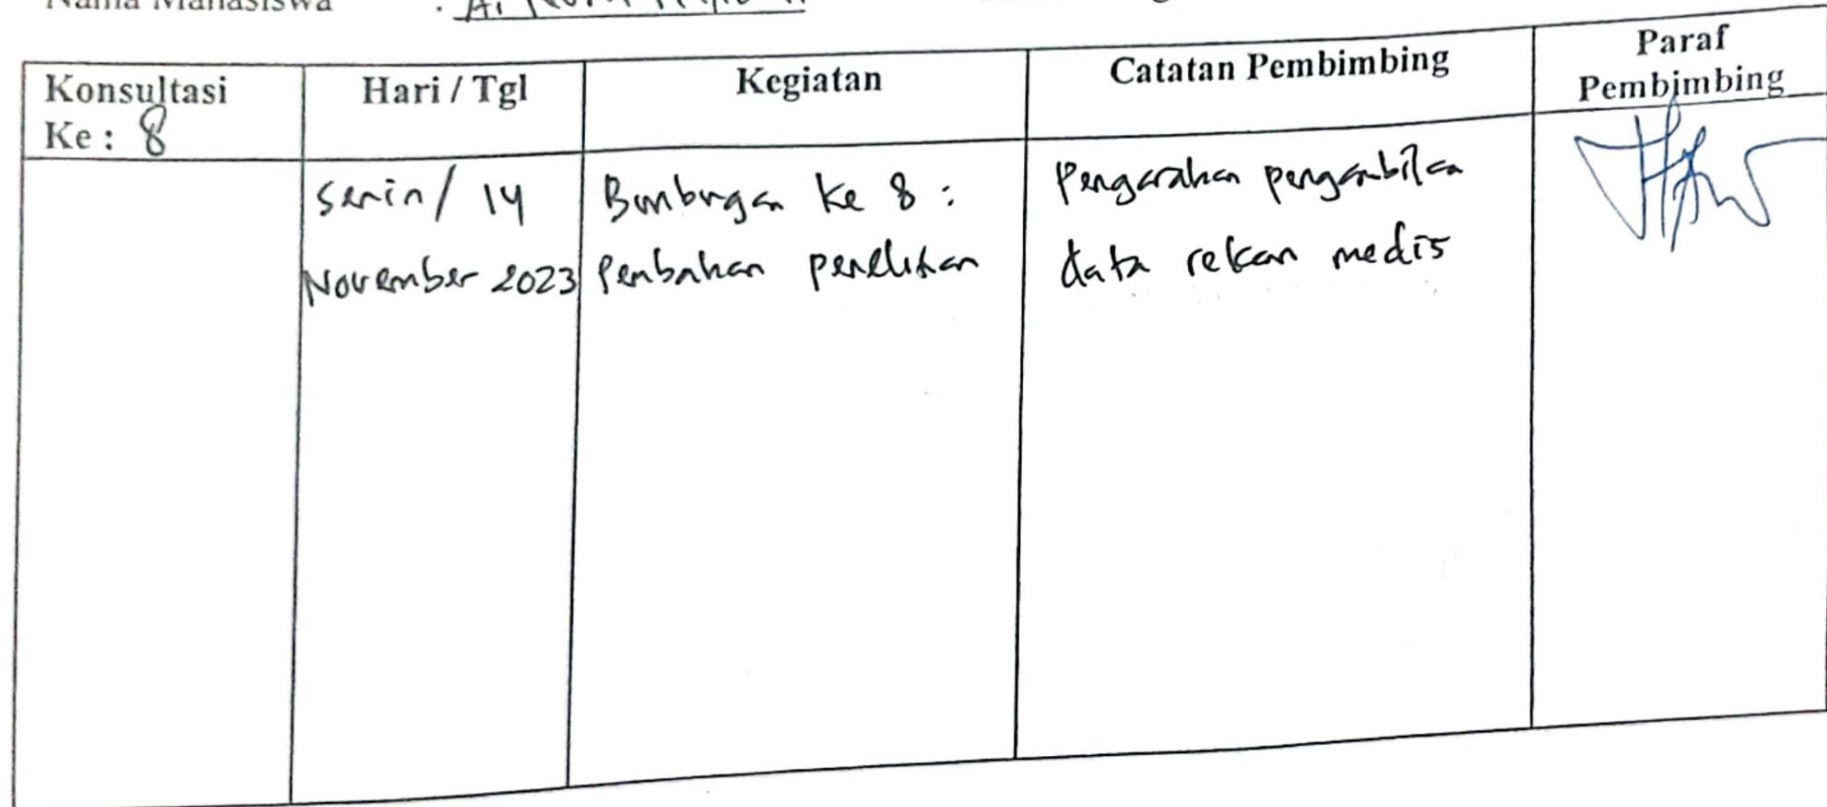 Nama Mahasiswa :
Konsultasi Ke : 8
Hari / Tgl
Kegiatan
Catatan Pembimbing
Paraf Pembimbing
Senin / 14
November 2023
Bimbingan ke 8 :
Penbahan penelitian
Pengarahan pengambilan
data rekam medis